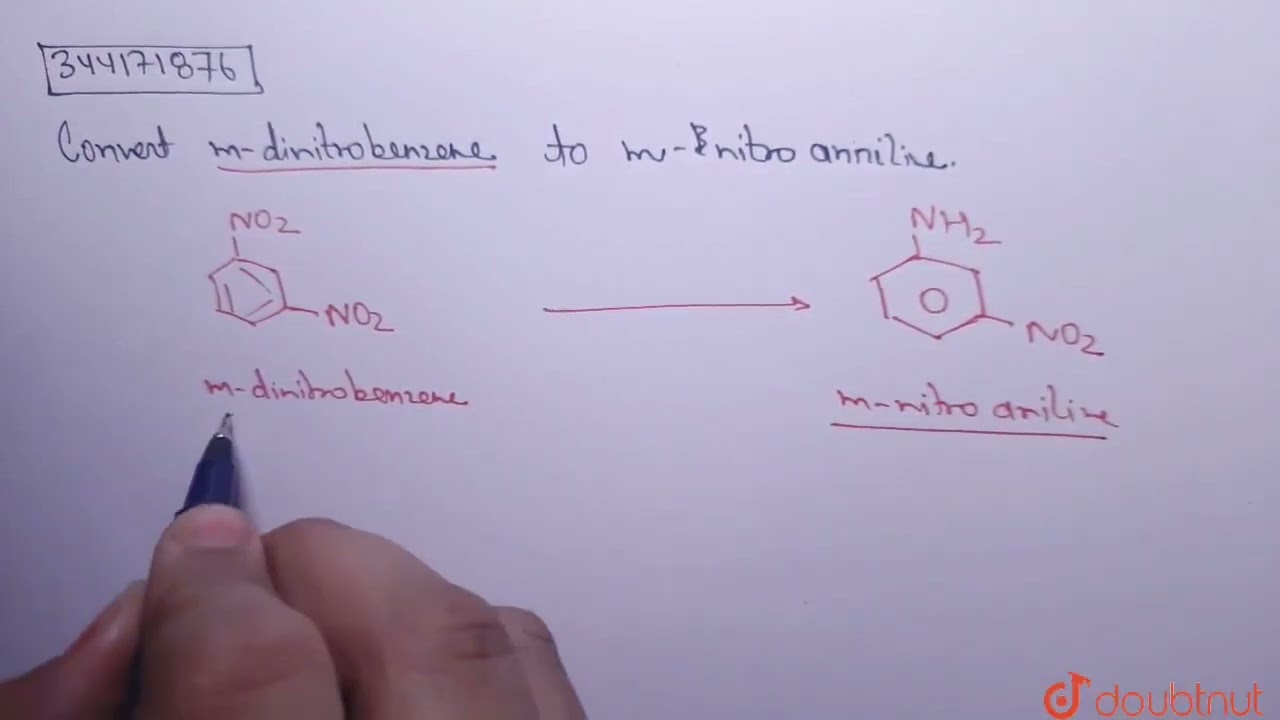 344171876
Convert m-dinitrobenzene to m-nitro anniline.
NO2
NO2
m-dinitrobenzene
NH2
NO2
m-nitro aniline
doubtnut